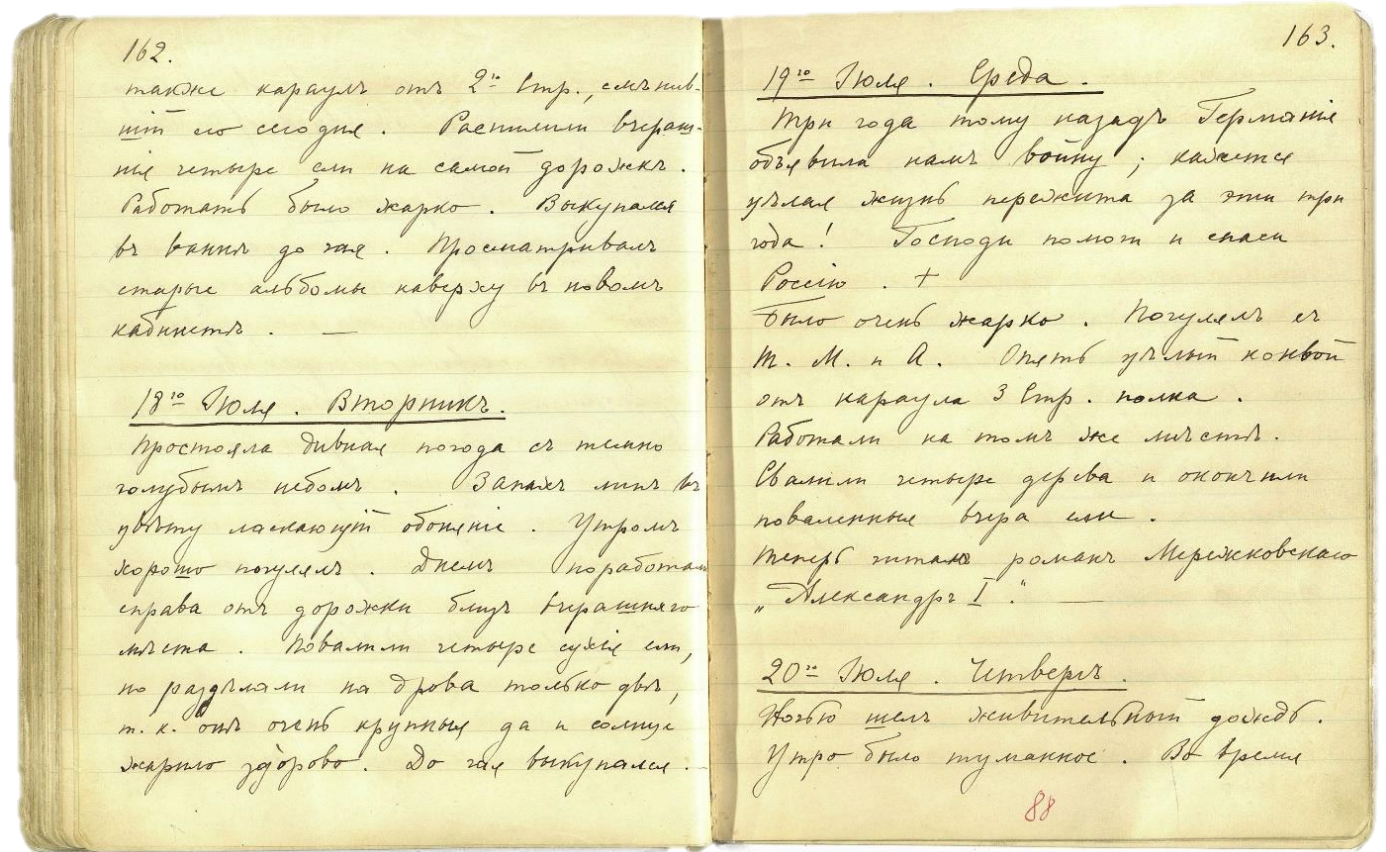 162.
также карауль отъ 2го Стр., смѣнив-
шій его сегодня. Распилили вчераш-
нія четыре ели на самой дорожкѣ.
Работать было жарко. Выкупался
въ ваннѣ до чая. Просматривалъ
старые альбомы наверху въ новомъ
кабинетѣ. —
18го Іюля. Вторникъ.
Простояла дивная погода съ темно
голубымъ небомъ. Запахъ липъ въ
цвѣту ласкающій обоняніе. Утромъ
хорошо погулялъ. Днемъ поработали
справа отъ дорожки близъ вчерашняго
мѣста. Повалили четыре сухія ели,
но раздѣлали на дрова только двѣ,
т. к. онѣ очень крупныя да и солнце
жарило здорово. До чая выкупался. —
163.
19го Іюля. Среда.
Три года тому назадъ Германія
объявила намъ войну; кажется
цѣлая жизнь пережита за эти три
года! Господи помоги и спаси
Россію. +
Было очень жарко. Погулялъ съ
Т. М. и А. Опять цѣлый конвой
отъ караула 3 Стр. полка.
Работали на томъ же мѣстѣ.
Свалили четыре дерева и окончили
поваленныя вчера ели.
Теперь читаю романъ Мережковскаго
„Александръ I“. —
20го Іюля. Четвергъ.
Ночью шелъ живительный дождь.
Утро было туманное. Во время
88